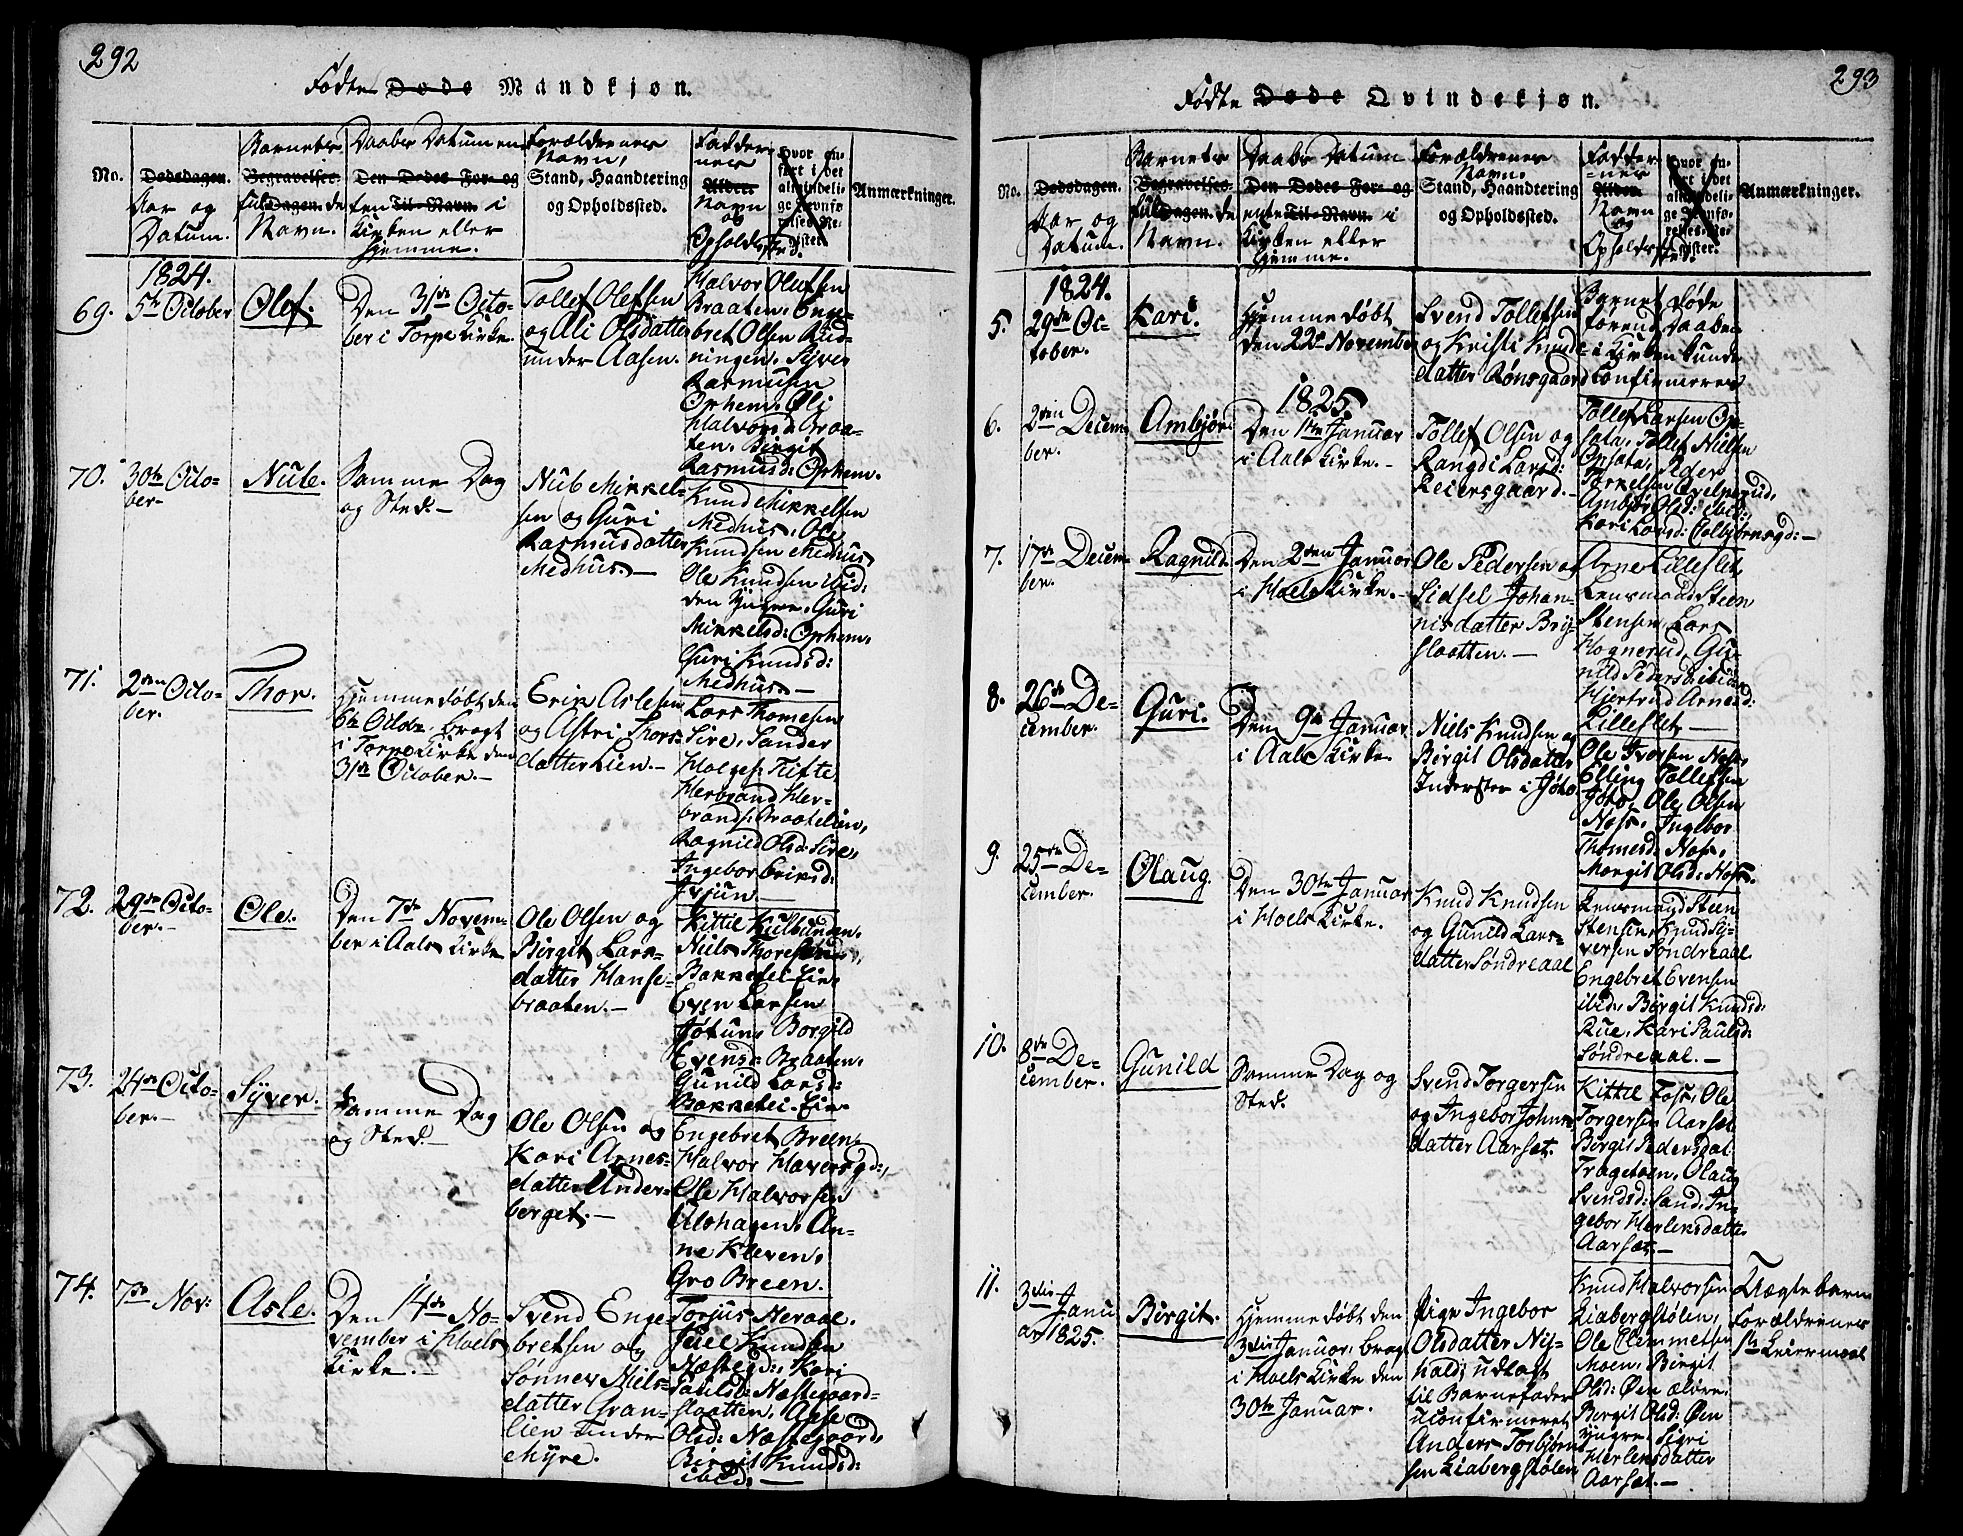 292
Födte Døde Mandkjøn.
No.
Dødsdagen.
Aar og
Datum.
Barnets
Begravelses-
fulde
Dagen.
Navn.
Daabs Datum en-
Den Dødes For- og
ten Til-Navn. i
Kirken eller
hjemme.
Forældrenes
Navn,
Stand, Haandtering
og Opholdssted.
Fadder-
nes
Alder.
Navn
og
Opholdssted.
Hvor an-
ført i det
almindeli-
ge Jevnfø-
relses-Re-
gister.
Anmærkninger.
1824.
69.
5te October
Olef.
Den 31te Octo-
ber i Torpe Kirke.
Tollef Olefsen
og Ali Olsdatter
under Aasen.
Halvor Olufsen
Braaten, Enge-
bret Olsen Rud-
ningen, Syver
Rasmusen
Ophem, Oli
Halvorsd: Braa-
ten, Birgit
Rasmusd: Ophem.
70.
30te Octo-
ber.
Nub.
Samme Dag
og Sted.
Nub Mikkel-
sen og Guri
Rasmusdatter
Medhus.
Knud Mikkelsen
Medhus, Ole
Knudsen Medhus
Ole Knudsen
den Yngre, Guri
Mikkelsd: Ophem,
Guri Knudsd:
Medhus.
71.
2den Octo-
ber.
Thor.
Hjemmedøbt den
6te Octbr, bragt
i Torpe Kirke den
31te October.
Erik Aslesen
og Astri Thors-
datter Lien.
Lars Thomesen
Sire, Sander
Holges: Tufte
Herbrand Her-
brands: Braatelien,
Ragnild Olsd: Sire,
Ingebor Eriksd:
72.
29de Octo-
ber.
Ole.
Den 7de Novem-
ber i Aals Kirke
Ole Olsen og
Birgit Lars-
datter Hanse-
braaten.
Kittil Kulbunden,
Niels
Bakketei-Eie,
Even Larsen
Jøtun, Borgild
Evensd: Braaten,
Gunild Larsd:
Bakketei-Eie.
73.
24de Octo-
ber.
Syver.
Samme Dag
og Sted.
Ole Olsen og
Kari Arnes-
datter Under-
berget.
Engebret Breen,
Halvor Haversgd:,
Ole Halvorsen
Alshagen, An-
ne Kleven,
Gro Breen.
74.
7de Nov:
Asle.
Den 14de No-
vember i Hoels
Kirke.
Svend Enge-
bretsen og
Sønnev Niels-
datter Gran-
lien under
Myre.
Torjus Heraal.
Juel Knudsen
Næstegd:, Kari
Paulsd: Næstegaard-
slaatten, Aase
Olsd: Næstegaard,
Birgit Knudsd:
ibid:
293
Födte Døde Qvindekjøn.
No.
Dødsdagen.
Aar og
Datum.
Barnets
Begravelses-
fulde
Dagen.
Navn.
Daabs Datum
Den Dødes For- og
enten Til-Navn. i
Kirken eller
hjemme.
Forældrenes
Navn.
Stand, Haandtering
og Opholdssted.
Fadder-
nes
Alder.
Navn
og
Opholdssted.
Hvor an-
ført i det
almindeli-
ge Jevnfø-
relses-Re-
gister.
Anmærkninger.
1824.
5.
29de Oc-
tober.
Kari.
Hjemmedøbt
den 22de November
Svend Tollefsen
og Kristi Knuds-
datter Rønsgaard
Barnet døde
førend Daaben
i Kirken kunde
confirmeres
6.
2den Decem-
ber.
Ambjør.
1825.
Den 1ste Januar
i Aals Kirke.
Tollef Olsen og
Rangdi Larsd:
Reiersgaard.
Tollef Larsen Op-
sata, Tollef Nielsen
Opsata, Peder
Torkelsen Qvelprud,
Ambjør Olsd: ibid:,
Kari Larsd: Colbjørnsgd:
7.
17de Decem-
ber.
Ragnild.
Den 2den Januar
i Hoels Kirke.
Ole Pedersen og
Sidsel Johan-
nisdatter Bry-
slaatten.
Arne Lilleslet,
Lensmand Steen
Stensen, Lars
Hognerud, Gu-
nild Pedersd: ibid:,
Hjertrud Arnesd:
Lilleslet
8.
26de De-
cember.
Guri.
Den 9de Januar
i Aals Kirke.
Niels Knudsen og
Birgit Olsdatter
Inderster i Jøto.
Ole Iversen Noss,
Elling Tollefsen
Jøto, Ole Olsen
Noss, Ingebor
Thomesd: Noss,
Margit Olsd: Noss.
9.
25de De-
cember.
Olaug.
Den 30te Januar
i Hoels Kirke.
Knud Knudsen
og Gunild Lars-
datter Søndreaal
Lensmand Steen
Stensen, Knud Sy-
versen Søndreaal
Engebret Evensen
ibid:, Birgit Knudsd:
Rue, Kari Paulsd:
Søndreaal.
10.
8de De-
cember.
Gunild
Samme Dag og
Sted.
Svend Torgersen
og Ingebor Johns-
datter Aarset.
Kittil Foss, Ole
Torgersen Aarset
Birgit Pedersdat:
Trageteen, Olaug
Svendsd: Sand, In-
gebor Herlensdatter
Aarset.
11.
3die Janu-
ar 1825.
Birgit.
Hjemmedøbt den
3die Januar, bragt
i Hoels Kirke den
30te Januar.
Pige Ingebor
Olsdatter Ny-
hald; udlagt
til Barnefader
uconfirmeret
Anders Torbjørn-
sen Liabergstølen
Knud Halvorsen
Liabergstølen,
Ole Clemmetsen
Moen, Birgit
Olsd: Øen ældre,
Birgit Olsd: Øen
yngre, Sigri
Herlensdatter
Aarset.
Uægte barn
Forældrenes
1ste Leiermaal